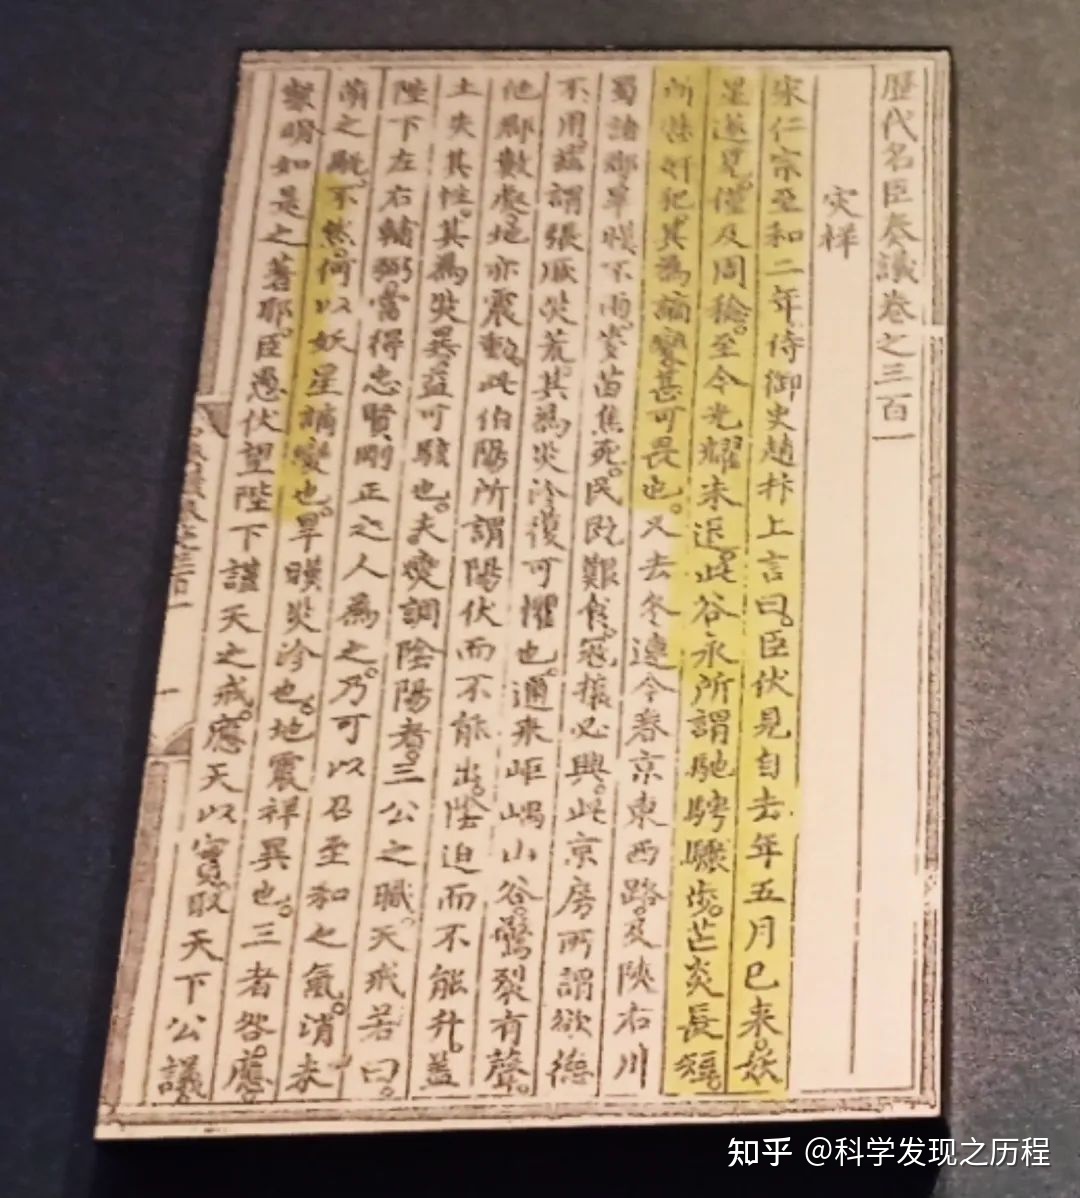 歷代名臣奏議卷之三百一
災祥
宋仁宗至和二年侍御史趙抃上言曰臣伏見自去年五月已來妖
星遂見僅及周稔至今光耀未退此谷永所謂馳騁驟步芒炎長短
所歷奸犯其為謫變甚可畏也又去冬連今春京東西路及陝右川
蜀諸郡旱暵不雨麥苗焦死民既艱食寇攘必興此京房所謂欲德
不用茲謂張厥災荒其為災沴復可懼也邇來岠嵎山谷驚裂有聲
他郡數處地亦震動此伯陽所謂陽伏而不能出陰迫而不能升蓋
土失其性其為災異益可駭也夫燮調陰陽者三公之職天戒若曰
陛下左右輔弼當得忠賢剛正之人為之乃可以召至和之氣消未
萌之眚不然何以妖星謫變也旱暵災沴也地震祥異也三者咎應
察明如是之著耶臣愚伏望陛下謹天之戒應天以實取天下公議
知乎 @科学发现之历程